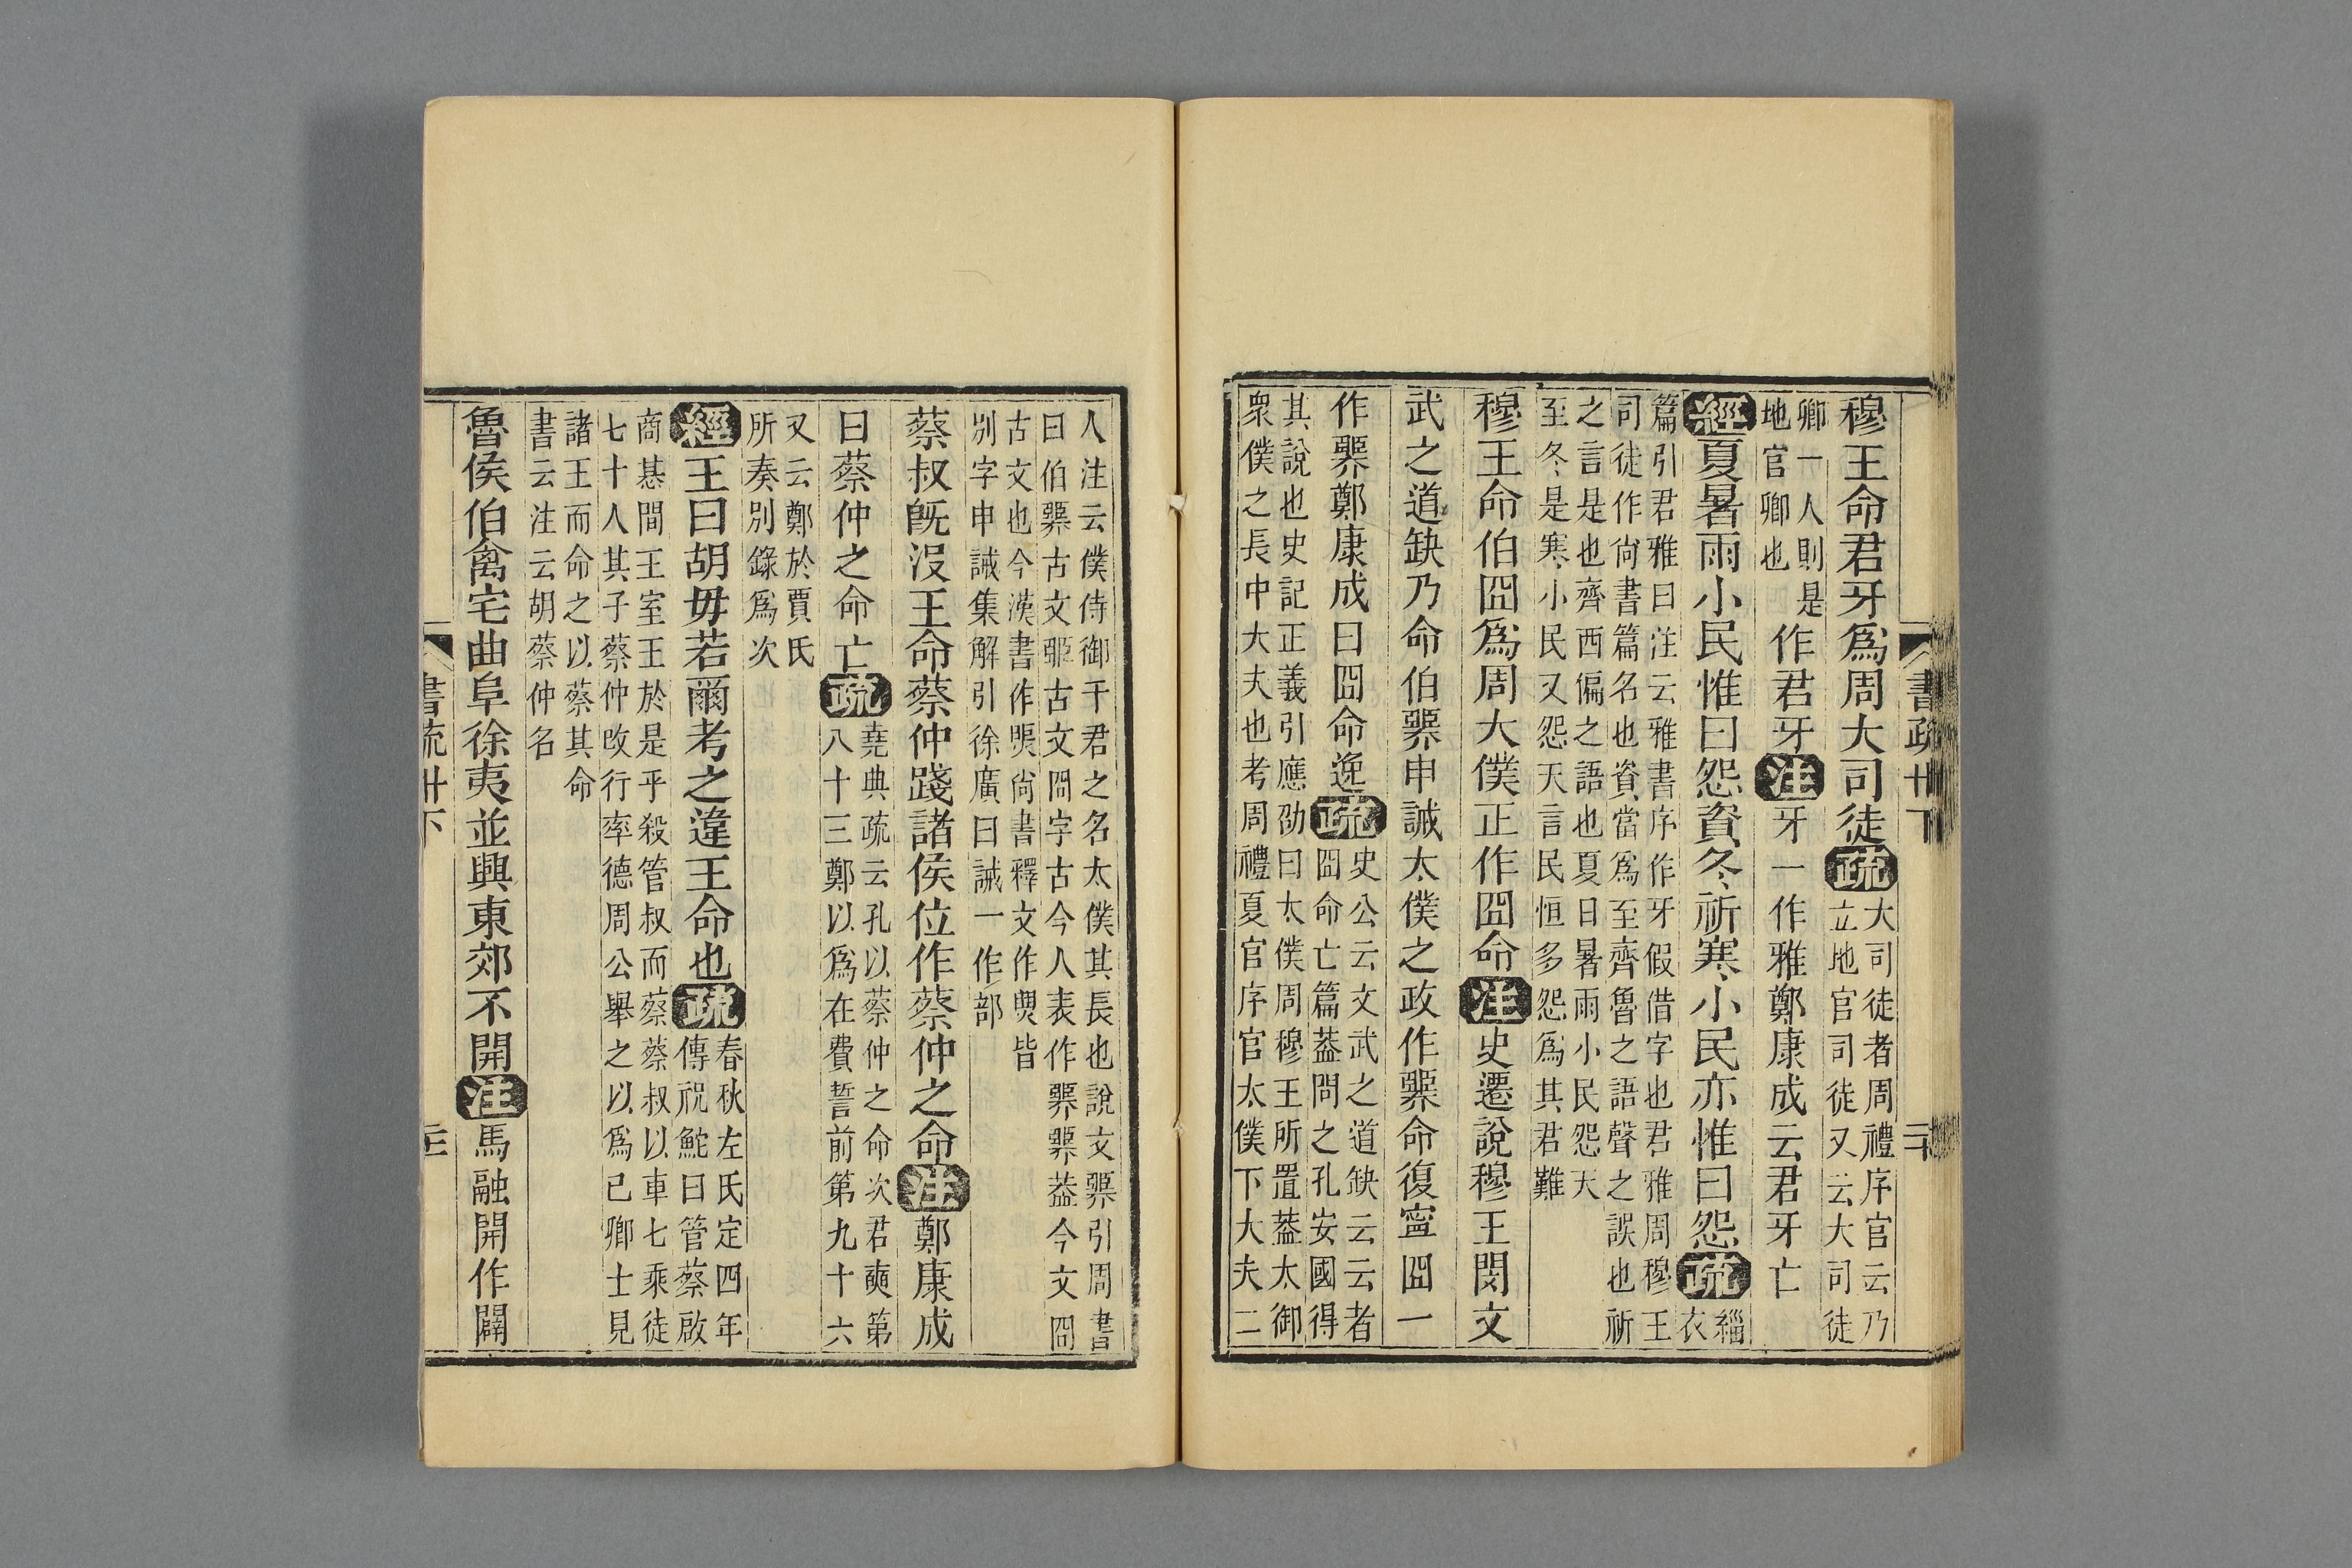 書疏卅下
二十
穆王命君牙爲周大司徒疏大司徒者周禮序官云乃
立地官司徒又云大司徒
卿一人則是
地官卿也作君牙注牙一作雅鄭康成云君牙亡
經夏暑雨小民惟曰怨資冬祈寒小民亦惟曰怨疏緇
衣
篇引君雅曰注云雅書序作牙假借字也君雅周穆王
司徒作尙書篇名也資當爲至齊魯之語聲之誤也祈
之言是也齊西偏之語也夏日暑雨小民怨天
至冬是寒小民又怨天言民恒多怨爲其君難
穆王命伯冏爲周大僕正作冏命注史遷說穆王閔文
武之道缺乃命伯臩申誡太僕之政作臩命復寍冏一
作臩鄭康成曰冏命逸疏史公云文武之道缺云云者
冏命亡篇葢問之孔安國得
其說也史記正義引應劭曰太僕周穆王所置葢太御
衆僕之長中大夫也考周禮夏官序官太僕下大夫二
人注云僕侍御于君之名太僕其長也說文臩引周書
曰伯臩古文臦古文冏字古今人表作臩臩葢今文冏
古文也今漢書作煛尙書釋文作煚皆
別字申誡集解引徐廣曰誡一作部
蔡叔旣沒王命蔡仲踐諸侯位作蔡仲之命注鄭康成
曰蔡仲之命亡疏堯典疏云孔以蔡仲之命次君奭第
八十三鄭以爲在費誓前第九十六
又云鄭於賈氏
所奏別錄爲次
經王曰胡毋若爾考之違王命也疏春秋左氏定四年
傳祝鮀曰管蔡啟
商惎間王室王於是乎殺管叔而蔡蔡叔以車七乘徒
七十人其子蔡仲攺行率德周公舉之以爲己卿士見
諸王而命之以蔡其命
書云注云胡蔡仲名
魯侯伯禽宅曲阜徐夷並興東郊不開注馬融開作闢
書疏卅下
二十